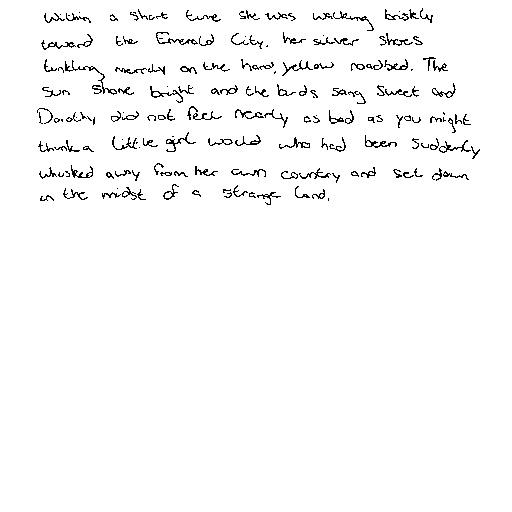 Within a short time she was walking briskly
toward the Emerald City, her silver shoes
tinkling merrily on the hard, yellow roadbed. The
sun shone bright and the birds sang sweet and
Dorothy did not feel nearly as bad as you might
think a little girl would who had been suddenly
whisked away from her own country and set down
in the midst of a strange land.